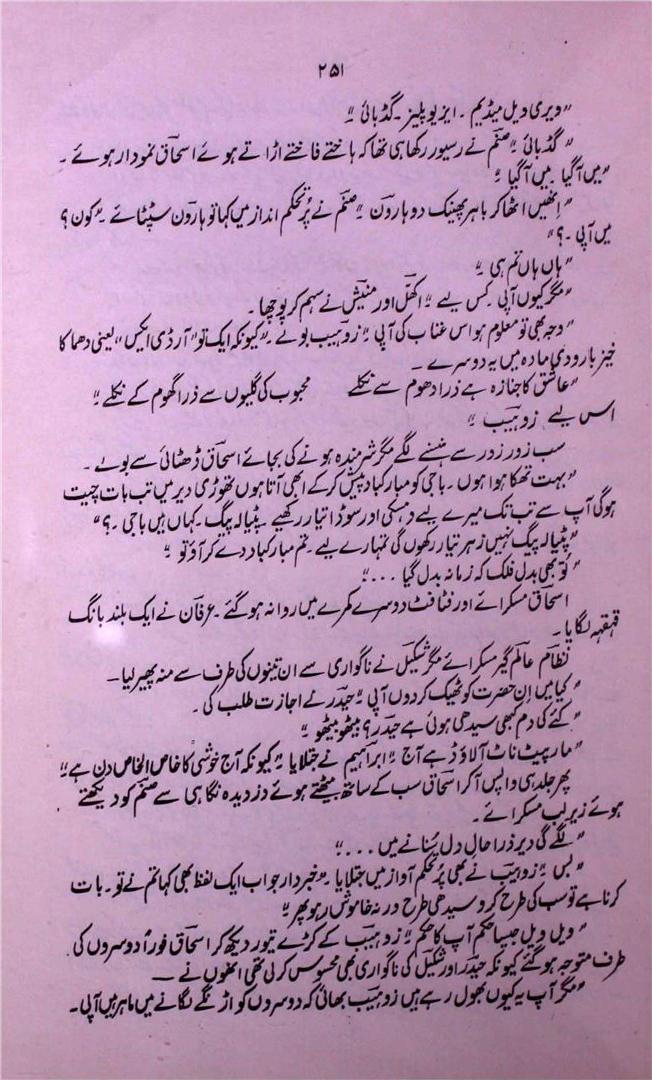 ۲۵۱
"ویری ویل میڈیم ۔ ایز یو پلیز ۔ گڈ بائی"
"گڈ بائی" صنم نے رسیور رکھا ہی تھا کہ ہاختے فاختے اڑاتے ہوئے اسحاق نمودار ہوئے ۔
"میں آگیا ۔ میں آگیا"
"انھیں اٹھا کر باہر پھینک دو ہارون" صنم نے پُر تحکم انداز میں کہا تو ہارون سٹپٹائے ۔ "کون ؟
میں آپی ۔ ؟"
"ہاں ہاں تم ہی"
"مگر کیوں آپی ۔ کس لیے" اکھل اور منیش نے سہم کر پوچھا ۔
"وجہ بھی تو معلوم ہو اس عتاب کی آپی" زوہیب بولے ۔ "کیونکہ ایک تو "آر ڈی ایکس" یعنی دھماکا
خیز بارودی مادہ ہیں یہ دوسرے ۔
"عاشق کا جنازہ ہے ذرا دھوم سے نکلے     محبوب کی گلیوں سے ذرا گھوم کے نکلے"
اس لیے زوہیب"
سب زور زور سے ہنسنے لگے مگر شرمندہ ہونے کی بجائے اسحاق ڈھٹائی سے بولے ۔
"بہت تھکا ہوا ہوں ۔ باجی کو مبارکباد پیش کرکے ابھی آتا ہوں تھوڑی دیر میں تب بات چیت
ہوگی آپ سے تب تک میرے لیے وہسکی اور سوڈا تیار رکھیے ۔ پٹیالہ پیگ ۔ کہاں ہیں باجی ۔ ؟"
"پٹیالہ پیگ نہیں زہر تیار رکھوں گی تمہارے لیے ۔ تم مبارکباد دے کر آؤ تو"
"تو بھی بدل فلک کہ زمانہ بدل گیا ۔۔۔"
اسحاق مسکرائے اور فٹافٹ دوسرے کمرے میں روانہ ہوگئے ۔ عرفان نے ایک بلند بانگ
قہقہہ لگایا ۔
نظام عالم گیر مسکرائے مگر شکیل نے ناگواری سے ان تینوں کی طرف سے منہ پھیر لیا ۔
"کیا میں اِن حضرت کو ٹھیک کر دوں آپی" حیدر نے اجازت طلب کی ۔
"کتے کی دم کبھی سیدھی ہوئی ہے حیدر ؟ بیٹھو بیٹھو"
"مار پیٹ ناٹ آلاؤڈ ہے آج" ابراہیم نے جتلایا "کیونکہ آج خوشی کا خاص الخاص دن ہے"
پھر جلد ہی واپس آکر اسحاق سب کے ساتھ بیٹھتے ہوئے دزدیدہ نگاہی سے صنم کو دیکھتے
ہوئے زیر لب مسکرائے ۔
"لگے گی دیر ذرا حالِ دل سُنانے میں ۔۔۔"
"بس" زوہیب نے بھی پُر تحکم آواز میں جتلایا ۔ "خبردار جو اب ایک لفظ بھی کہا تم نے تو ۔ بات
کرنا ہے تو سب کی طرح کرو سیدھی طرح ورنہ خاموش رہو پھر"
"ویل ویل جیسا حکم آپ کا حکم" زوہیب کے کڑے تیور دیکھ کر اسحاق فوراً دوسروں کی
طرف متوجہ ہوگئے کیونکہ حیدر اور شکیل کی ناگواری بھی محسوس کر لی تھی انھوں نے ۔
"مگر آپ یہ کیوں بھول رہے ہیں زوہیب بھائی کہ دوسروں کو اڑنگے لگانے میں ماہر ہیں آپی ۔